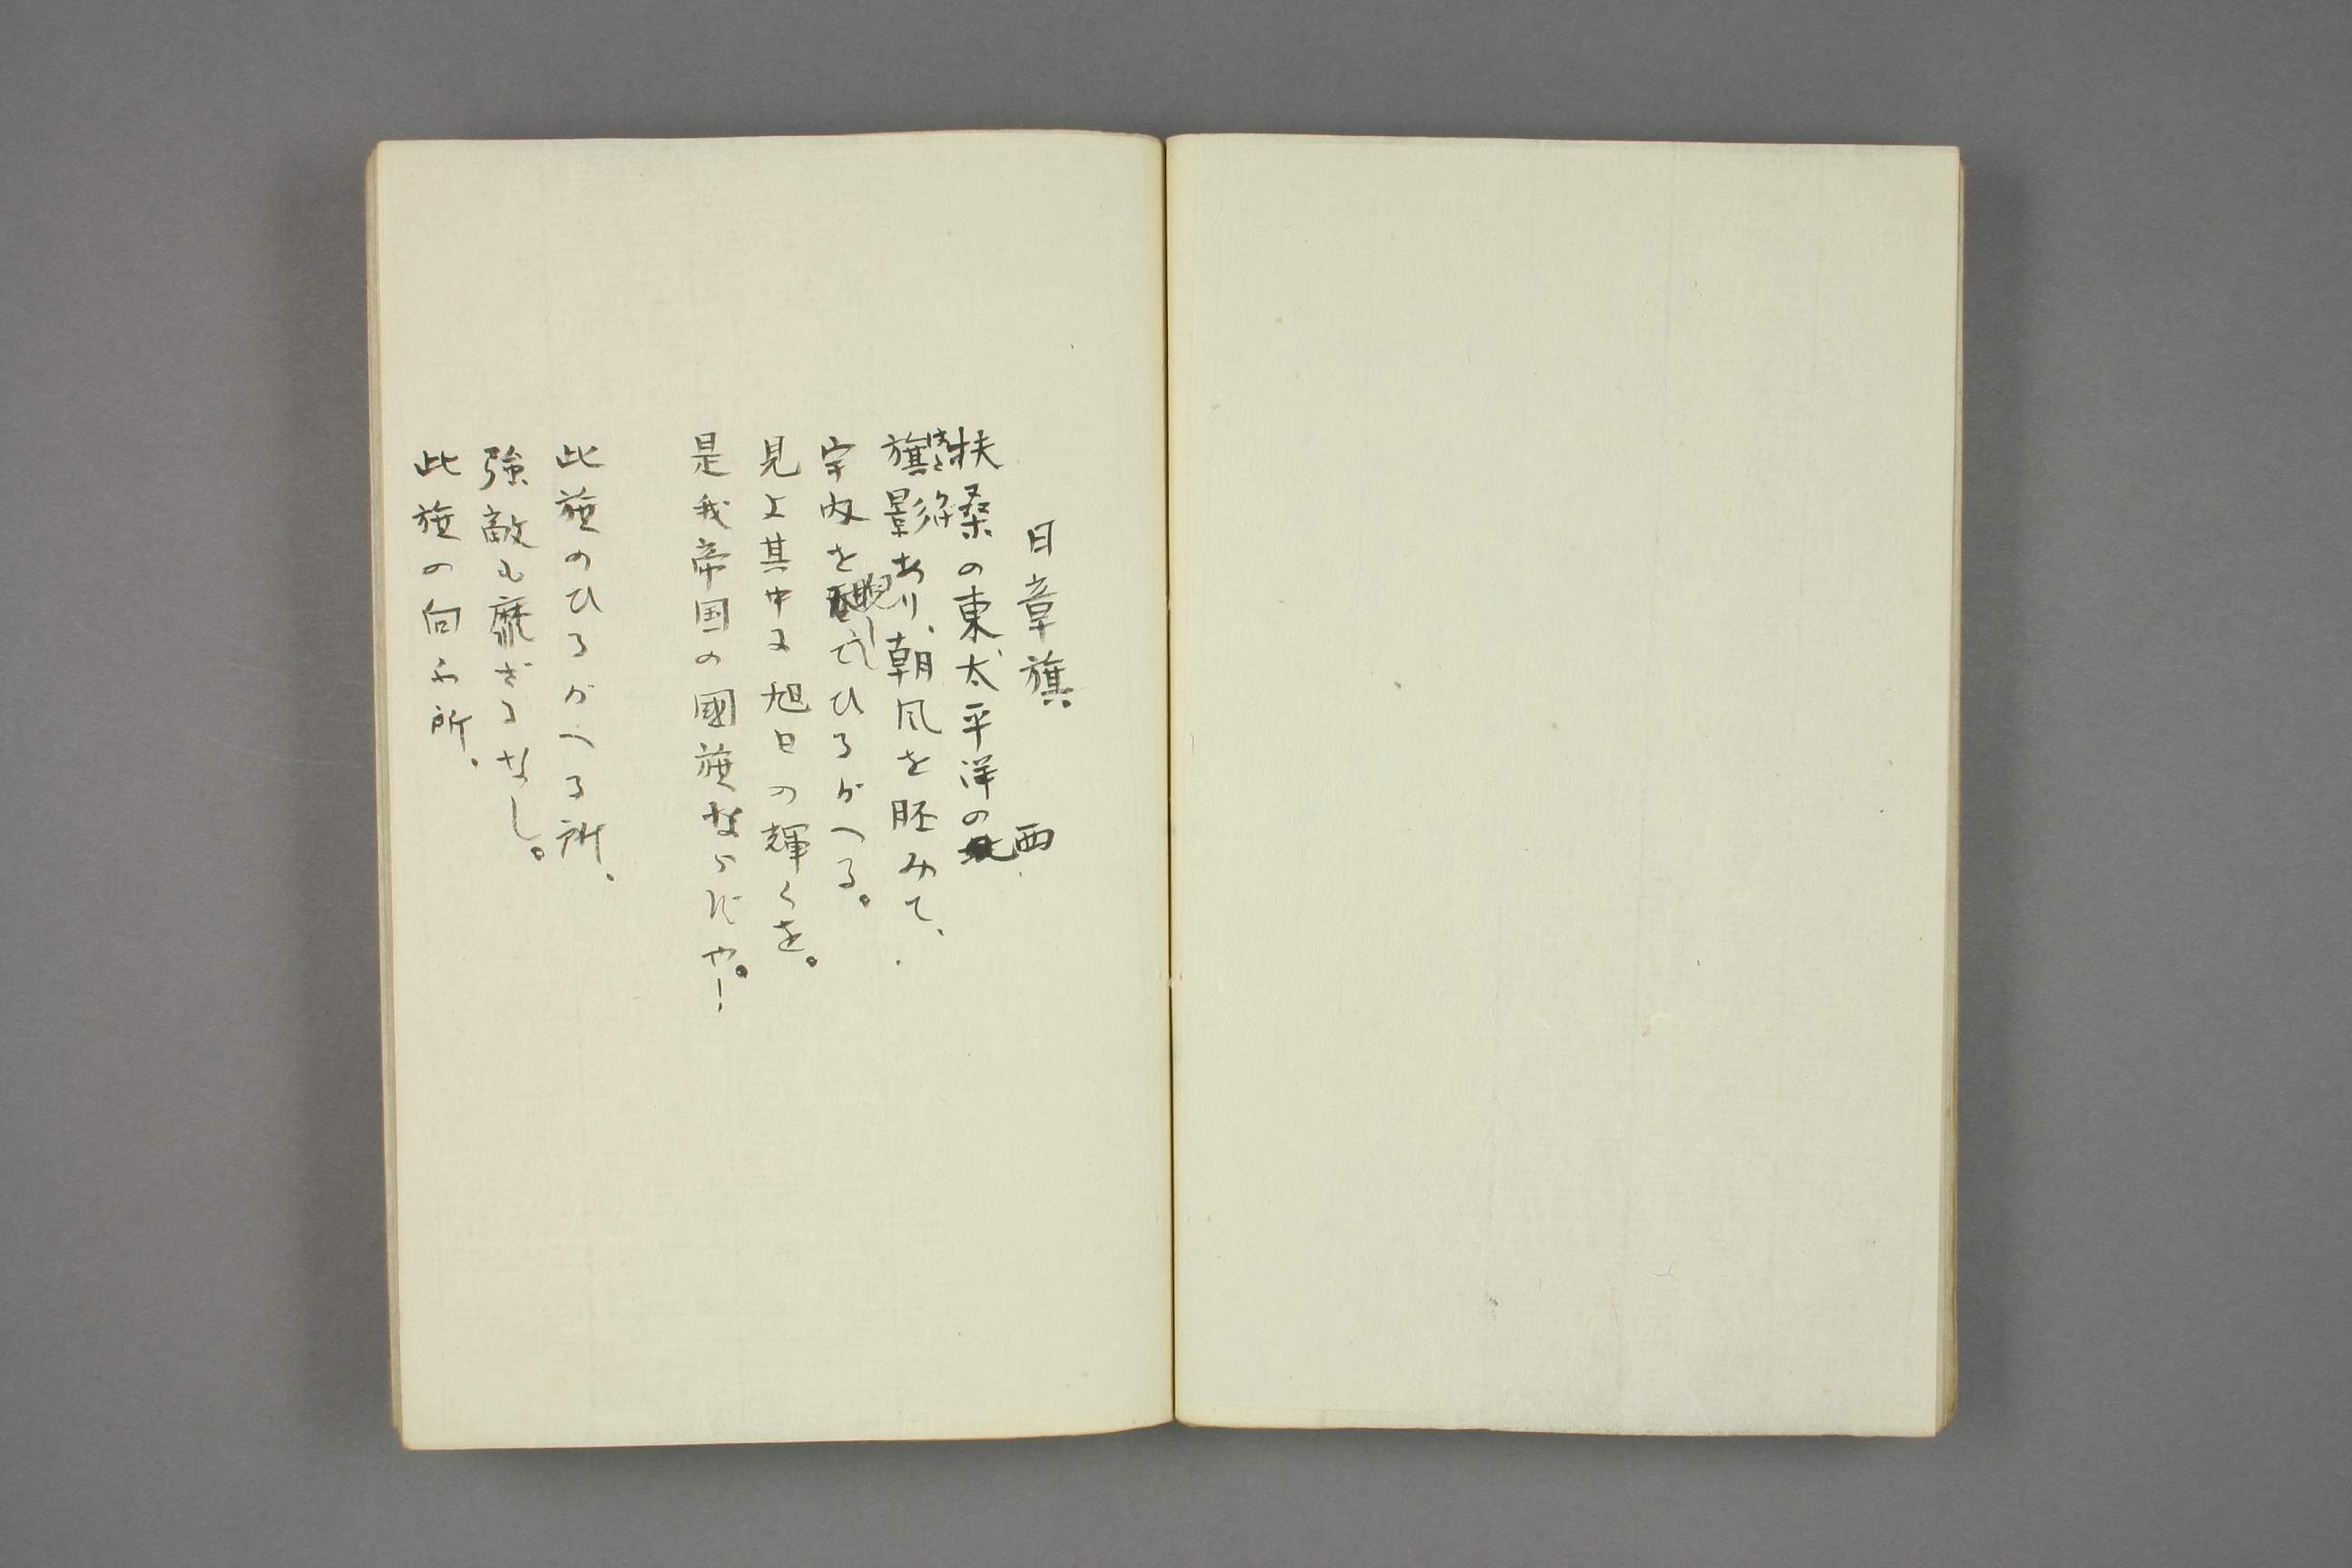 日章旗
扶桑の東、太平洋の西
旗影あり、朝風を胚みて、
はた かげ
宇内を睨してひるがへる。
見よ其中に旭日の輝くを。
是我帝国の國旗ならずや。!
此旗のひるがへる所、
強敵も靡ざるなし。
此旗の向ふ所、